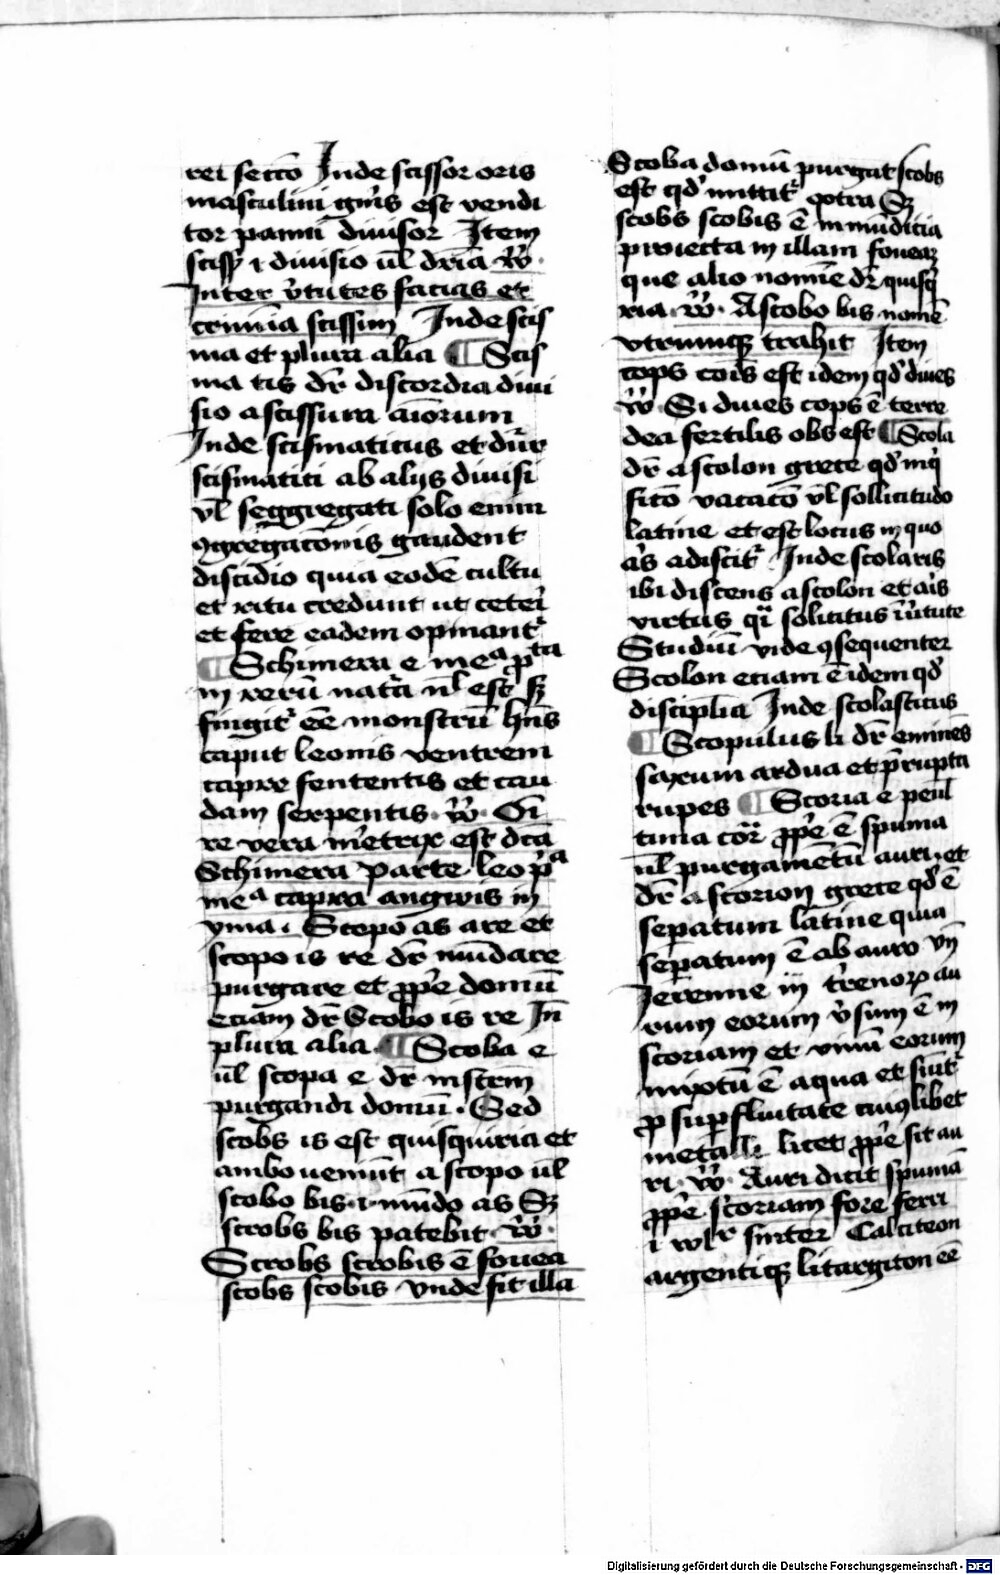 rei sectō Inde scissor oris
masculini gn̄is est vendi
tor panni diuisor Item
sciss̄ ē diuisio ul̄ dr̄ia v̄r̄
Inter v̄tutes facias et
crimīa scissim Inde scis
ma et plura alia ¶ Scis
ma tis dr̄ discordia diui
sio a scissura aīorum
Inde scismaticus et dūr
scismatici ab alijs diuisi
vl̄ seggregati solo enim
ꝯgregac̄onis gaudent
discidio quia eodē cultu
et ritu credunt ut ceteri
et fere eadem opinant᷑
¶ Schimera e meᵃ p̄ta
in rerū nat̄a nl̄ est sꝫ
fingit᷑ ēe monstrū hn̄s
caput leonis ventrem
capre fententis et cau
dam serpentis v̄r̄
re vera m̄etrix est dc̄a
Schimera Parte leo p̄ᵃ
meᵃ capra angwis in
yma. Scopo as are et
scopo is re dr̄ mūdare
purgare et ꝓp̄e domū
etiam dr̄ Scobo is re In̄
plura alia ¶ Scoba e
ul̄ scopa e dr̄ instrm̄
purgandi domū. Sed
scobs is est quisquiria et
ambo ueniūt a scopo ul̄
scobo bis .i. mūdo as Sꝫ
scrobs bis patebit v̄r̄
Scrobs scrobis ē fouea
scobs scobis vnde fit illa
Scoba domū purgat scobs
est qd̄ mittit᷑ Sꝫ
scobs scobis ē inmūdicia
proiecta in illam foueaꝫ
que alio nomīe dr̄ quisq̄
ria v̄r̄ A scobo bis nomē
vtrumqꝫ trahit Item
cops coīs est idem qd̄ diues
v̄r̄ Si diues cops ē terre
dea fertilis obs est ¶ Scola
dr̄ a scolon grece qd̄
vacac̄o vl̄ sollicitudo
latine et est locus in quo
a͛s adiscit᷑ Inde scolaris
ibi discens a scolon et a͛is
virtus q̄i solicitus ī v̄tute
Studiū vide ꝯsequenter
Scolon etiam ē idem qd̄
disciplīa Inde scolasticus
¶ Scopulus li dr̄ eminēs
saxum ardua et p̄rupta
rupes ¶ Scoria e penl̄
tima cor̄ ꝓp̄e ē spuma
ul̄ purgamētū auri. et
dr̄ a scorion grece qd̄ ē
sep̄atum latine quia
sep̄atum ē ab auro vn̄
Jeremie in trenoꝝ au
rum eorum v̄sum ē in
scoriam et vinū eorum
mixtū ē aqua et
ꝓ sup̄fluitate cuiꝯlibet
metalli licet ꝓp̄e sit au
ri. v̄r̄ Auri dicit spumā
ꝓp̄e scoriam fore ferri
Calciteon
argentiqꝫ litargiton ēe
Digitalisierung gefördert durch die Deutsche Forschungsgemeinschaft - DFG